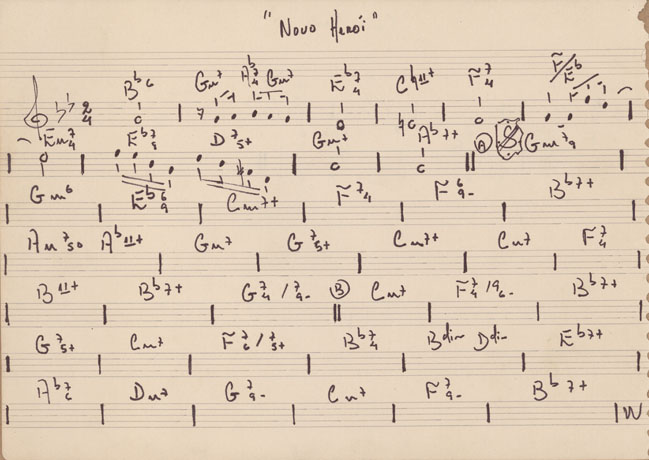 "Novo Herói"
2/4 B♭6 Gm7 A♭7/4 Gm7 E♭7/4 C♮11+ F7/4 F/E♭
Em7/4 E♭7/9 D7/5+ Gm7 A♭7+ A Gm7/9
Gm6 E♭6/9 Cm7+ F7/4 F6/9- B♭7+
Am7/5o A♭11+ Gm7 G7/5+ Cm7+ Cm7 F7/4
B11+ B♭7+ G7/4 / 7/9- B Cm7 F7/4 / 9/6- B♭7+
G7/5+ Cm7 F7/6 / 7/5+ B♭7/4 Bdim Ddim E♭7+
A♭7/6 Dm7 G7/9- Cm7 F7/9- B♭7+